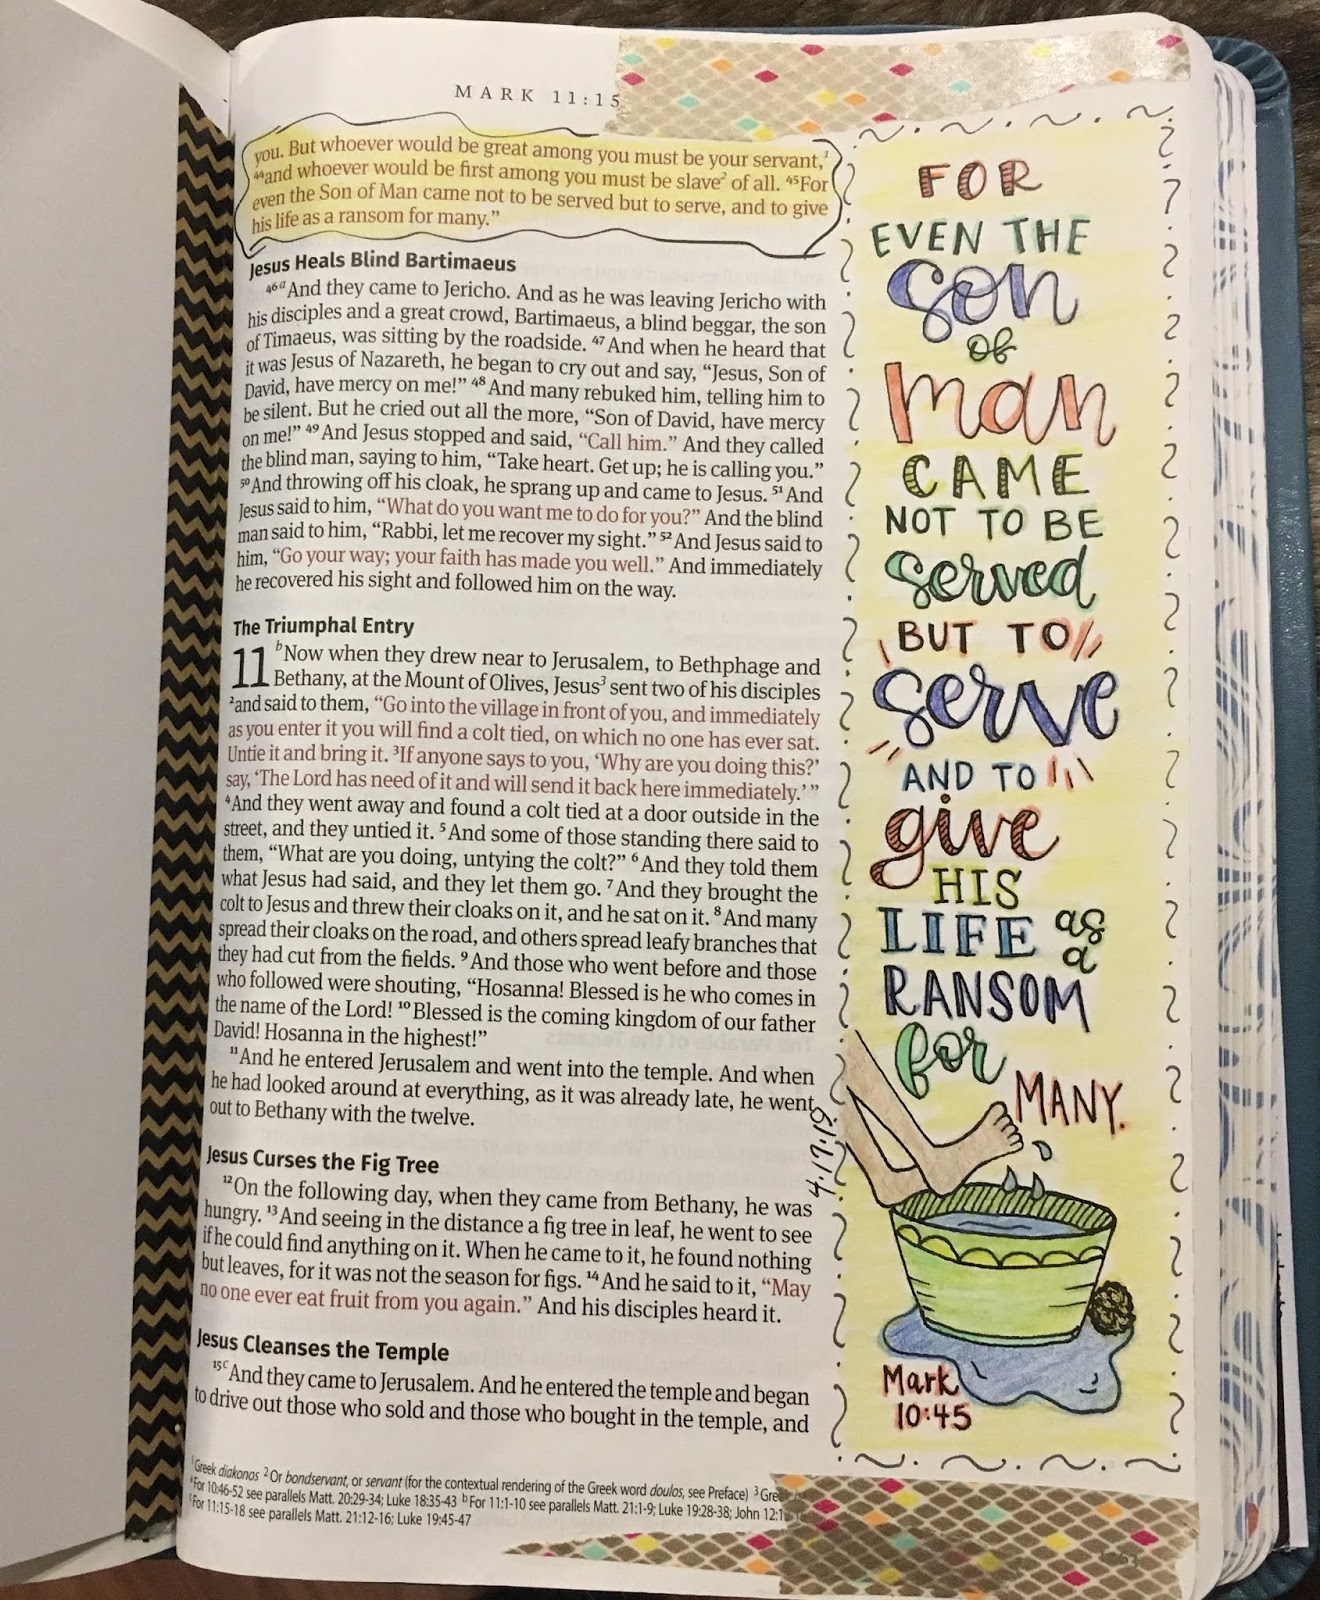 MARK 11:15
you. But whoever would be great among you must be your servant,¹
⁴⁴and whoever would be first among you must be slave² of all. ⁴⁵For
even the Son of Man came not to be served but to serve, and to give
his life as a ransom for many.”
Jesus Heals Blind Bartimaeus
⁴⁶ᵃAnd they came to Jericho. And as he was leaving Jericho with
his disciples and a great crowd, Bartimaeus, a blind beggar, the son
of Timaeus, was sitting by the roadside. ⁴⁷And when he heard that
it was Jesus of Nazareth, he began to cry out and say, “Jesus, Son of
David, have mercy on me!” ⁴⁸And many rebuked him, telling him to
be silent. But he cried out all the more, “Son of David, have mercy
on me!” ⁴⁹And Jesus stopped and said, “Call him.” And they called
the blind man, saying to him, “Take heart. Get up; he is calling you.”
⁵⁰And throwing off his cloak, he sprang up and came to Jesus. ⁵¹And
Jesus said to him, “What do you want me to do for you?” And the blind
man said to him, “Rabbi, let me recover my sight.” ⁵²And Jesus said to
him, “Go your way; your faith has made you well.” And immediately
he recovered his sight and followed him on the way.
The Triumphal Entry
11 ᵇNow when they drew near to Jerusalem, to Bethphage and
Bethany, at the Mount of Olives, Jesus³ sent two of his disciples
²and said to them, “Go into the village in front of you, and immediately
as you enter it you will find a colt tied, on which no one has ever sat.
Untie it and bring it. ³If anyone says to you, ‘Why are you doing this?’
say, ‘The Lord has need of it and will send it back here immediately.’”
⁴And they went away and found a colt tied at a door outside in the
street, and they untied it. ⁵And some of those standing there said to
them, “What are you doing, untying the colt?” ⁶And they told them
what Jesus had said, and they let them go. ⁷And they brought the
colt to Jesus and threw their cloaks on it, and he sat on it. ⁸And many
spread their cloaks on the road, and others spread leafy branches that
they had cut from the fields. ⁹And those who went before and those
who followed were shouting, “Hosanna! Blessed is he who comes in
the name of the Lord! ¹⁰Blessed is the coming kingdom of our father
David! Hosanna in the highest!”
¹¹And he entered Jerusalem and went into the temple. And when
he had looked around at everything, as it was already late, he went
out to Bethany with the twelve.
Jesus Curses the Fig Tree
¹²On the following day, when they came from Bethany, he was
hungry. ¹³And seeing in the distance a fig tree in leaf, he went to see
if he could find anything on it. When he came to it, he found nothing
but leaves, for it was not the season for figs. ¹⁴And he said to it, “May
no one ever eat fruit from you again.” And his disciples heard it.
Jesus Cleanses the Temple
¹⁵ᶜAnd they came to Jerusalem. And he entered the temple and began
to drive out those who sold and those who bought in the temple, and
¹Greek diakonos ²Or bondservant, or servant (for the contextual rendering of the Greek word doulos, see Preface) ³Gre
ᵃFor 10:46-52 see parallels Matt. 20:29-34; Luke 18:35-43 ᵇFor 11:1-10 see parallels Matt. 21:1-9; Luke 19:28-38; John 12:1
ᶜFor 11:15-18 see parallels Matt. 21:12-16; Luke 19:45-47
FOR
EVEN THE
Son
of
man
CAME
NOT TO BE
Served
BUT TO
Serve
AND TO
give
HIS
LIFE as
a
RANSOM
for
MANY.
4.17.19
Mark
10:45